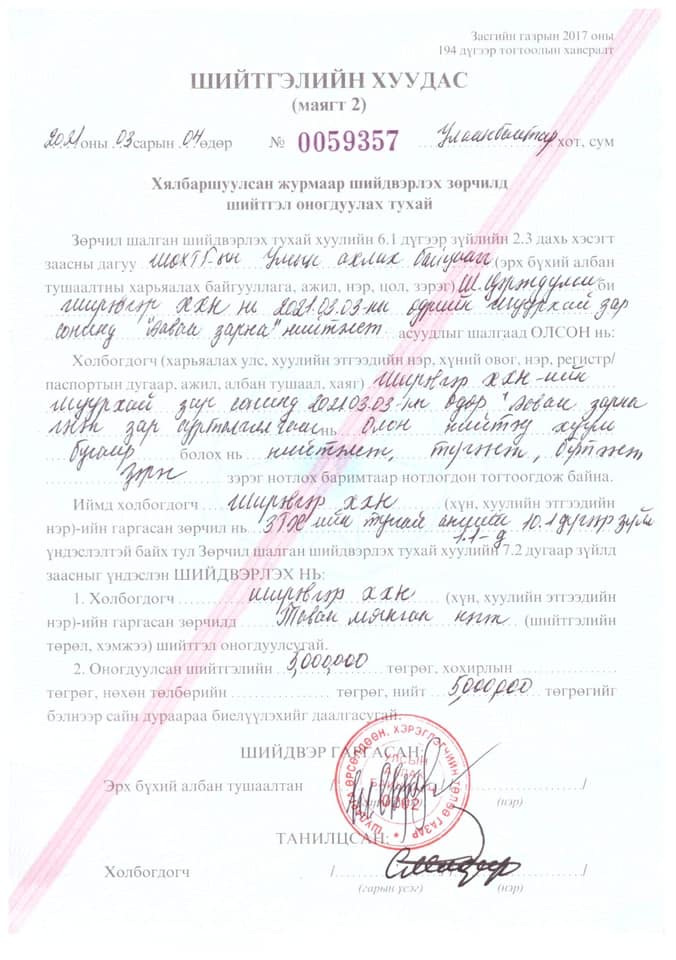 Засгийн газрын 2017 оны
194 дүгээр тогтоолын хавсралт
ШИЙТГЭЛИЙН ХУУДАС
(маягт 2)
2021 оны 03 сарын 04 өдөр № 0059357 Улаанбаатар хот, сум
Хялбаршуулсан журмаар шийдвэрлэх зөрчилд
шийтгэл оногдуулах тухай
Зөрчил шалган шийдвэрлэх тухай хуулийн 6.1 дүгээр зүйлийн 2.3 дахь хэсэгт
заасны дагуу ШӨХТГ-ын Улсын ахлах байцаагч (эрх бүхий албан
тушаалтны харьяалах байгууллага, ажил, нэр, цол, зэрэг) би
Ширэвгэр ХХН нь 2021.03.03-ны өдрийн шуурхай зар
сонинд зарна" нийтлэт асуудлыг шалгаад ОЛСОН нь:
Холбогдогч (харьяалах улс, хуулийн этгээдийн нэр, хүний овог, нэр, регистр/
паспортын дугаар, ажил, албан тушаал, хаяг) Ширэвгэр ХХН-ийн
шуурхай зар сонинд 2021.03.03-ны өдөр зарна
зар нь олон нийтэд
болох нь нийтлэж, түгээж,
зэрэг нотлох баримтаар нотлогдон тогтоогдож байна.
Иймд холбогдогч Ширэвгэр ХХН (хүн, хуулийн этгээдийн
нэр)-ийн гаргасан зөрчил нь ЗТХ-ийн тусгай ангийн 10.1 дүгээр зүйл
1.1-д
үндэслэлтэй байх тул Зөрчил шалган шийдвэрлэх тухай хуулийн 7.2 дугаар зүйлд
заасныг үндэслэн ШИЙДВЭРЛЭХ НЬ:
1. Холбогдогч Ширэвгэр ХХН (хүн, хуулийн этгээдийн
нэр)-ийн гаргасан зөрчилд Таван мянган нэгж (шийтгэлийн
төрөл, хэмжээ) шийтгэл оногдуулсугай.
2. Оногдуулсан шийтгэлийн 5,000,000 төгрөг, хохирлын
төгрөг, нөхөн төлбөрийн төгрөг, нийт 5,000,000 төгрөгийг
бэлнээр сайн дураараа биелүүлэхийг даалгасугай.
ШИЙДВЭР ГАРГАСАН:
Эрх бүхий албан тушаалтан / /
(нэр)
ШУДАРГА ӨРСӨЛДӨӨН, ХЭРЭГЛЭГЧИЙН ТӨЛӨӨ ГАЗАР
УЛСЫН
0202
ТАНИЛЦСАН:
Холбогдогч / /
(гарын үсэг) (нэр)